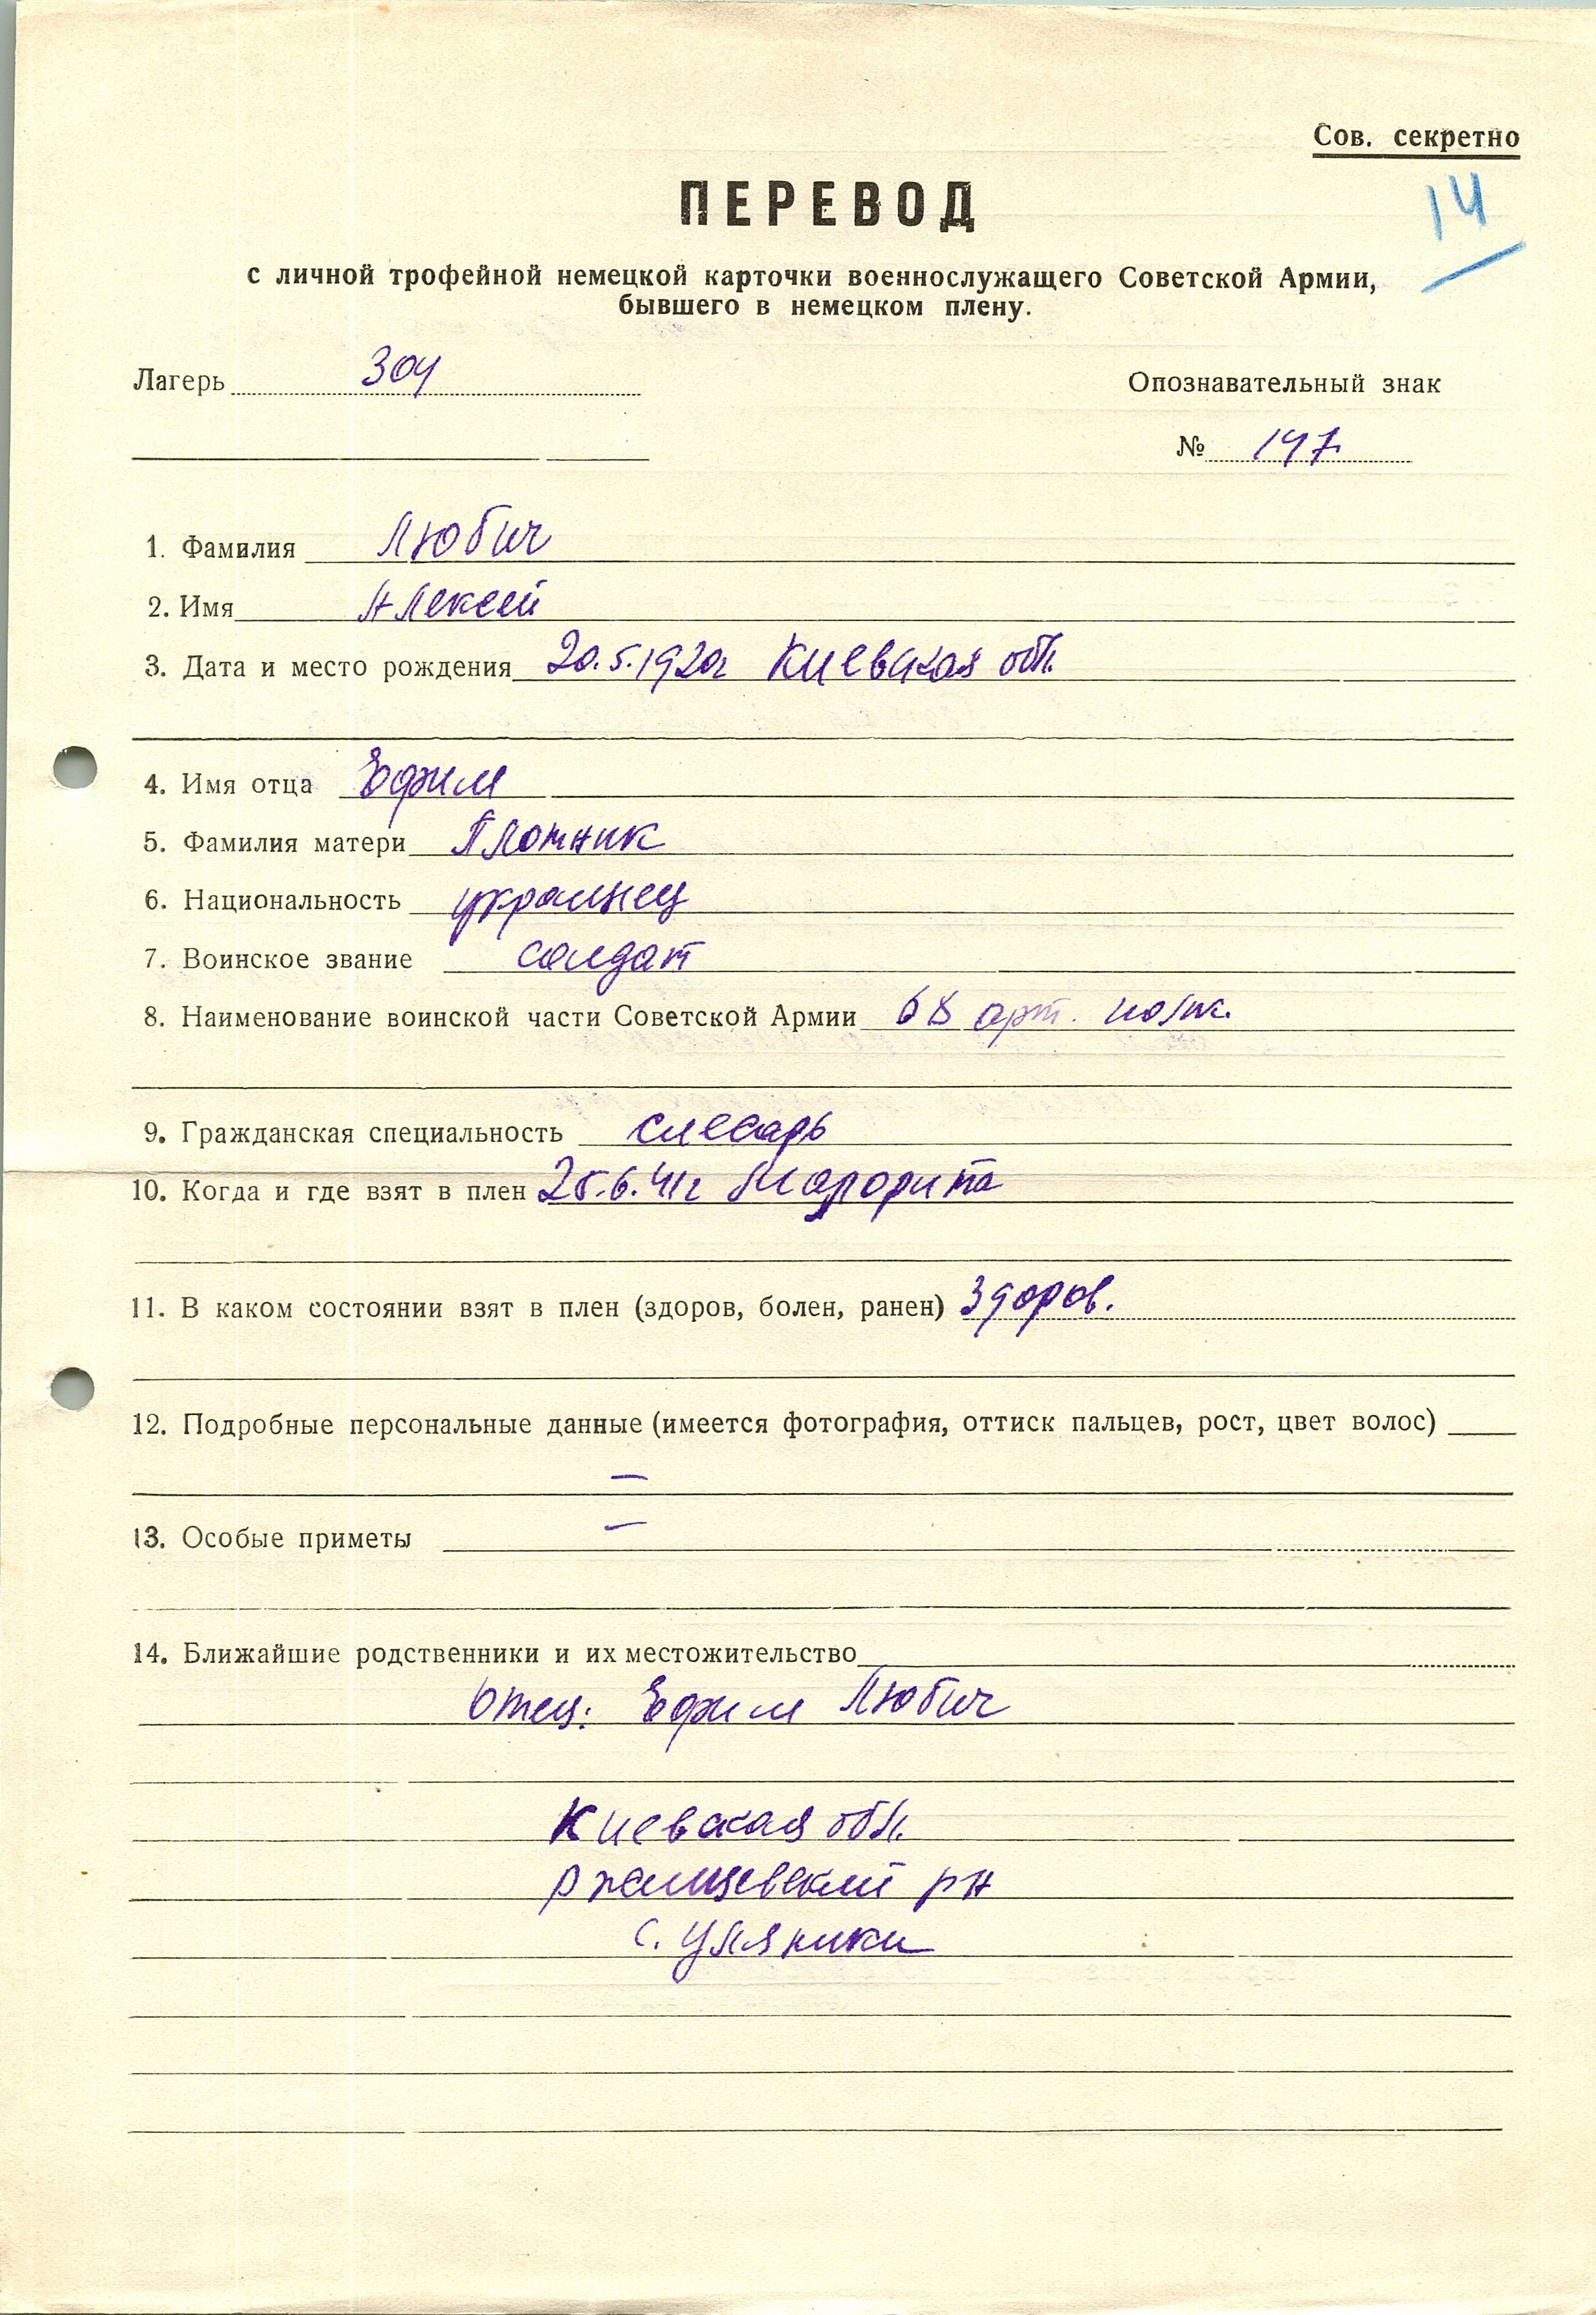 Сов. секретно
14
ПЕРЕВОД
с личной трофейной немецкой карточки военнослужащего Советской Армии,
бывшего в немецком плену.
Лагерь 304 Опознавательный знак
№ 147
1. Фамилия Любич
2. Имя Алексей
3. Дата и место рождения 20.5.1920г Киевская обл.
4. Имя отца Ефим
5. Фамилия матери Плотник
6. Национальность украинец
7. Воинское звание солдат
8. Наименование воинской части Советской Армии 68 арт. полк.
9. Гражданская специальность слесарь
10. Когда и где взят в плен 25.6.41г Малорита
11. В каком состоянии взят в плен (здоров, болен, ранен) Здоров.
12. Подробные персональные данные (имеется фотография, оттиск пальцев, рост, цвет волос)
—
13. Особые приметы —
14. Ближайшие родственники и их местожительство
Отец: Ефим Любич
Киевская обл.
Ржищевский рн
с. Уляники